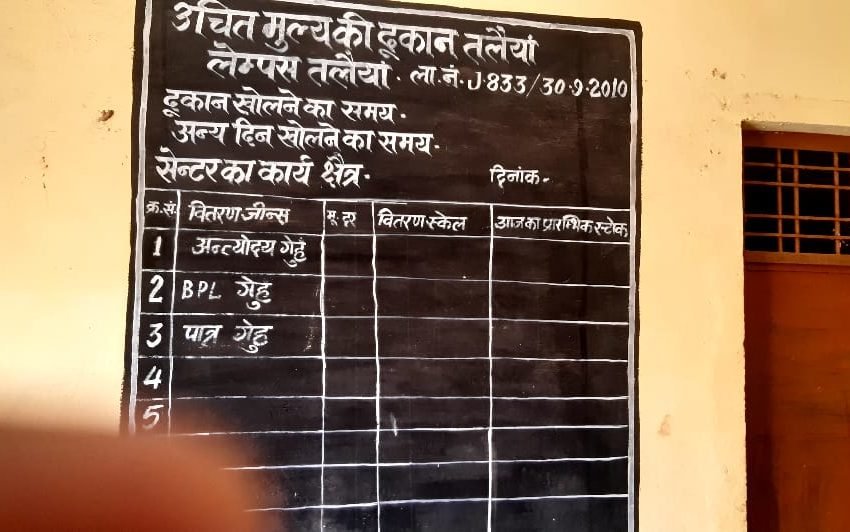 उचित मुल्य की दूकान तलैयां
लेम्पस तलैयां. ला.नं.J.833/30.9.2010
दूकान खोलने का समय.
अन्य दिन खोलने का समय.
सेन्टर का कार्य क्षैत्र. दिनांक-
क्र.सं. वितरण जीन्स मू. दर वितरण स्केल आज का प्रारम्भिक स्टोक
1 अन्त्योदय गेहुं
2 BPL गेहु
3 पात्र गेहु
4
5